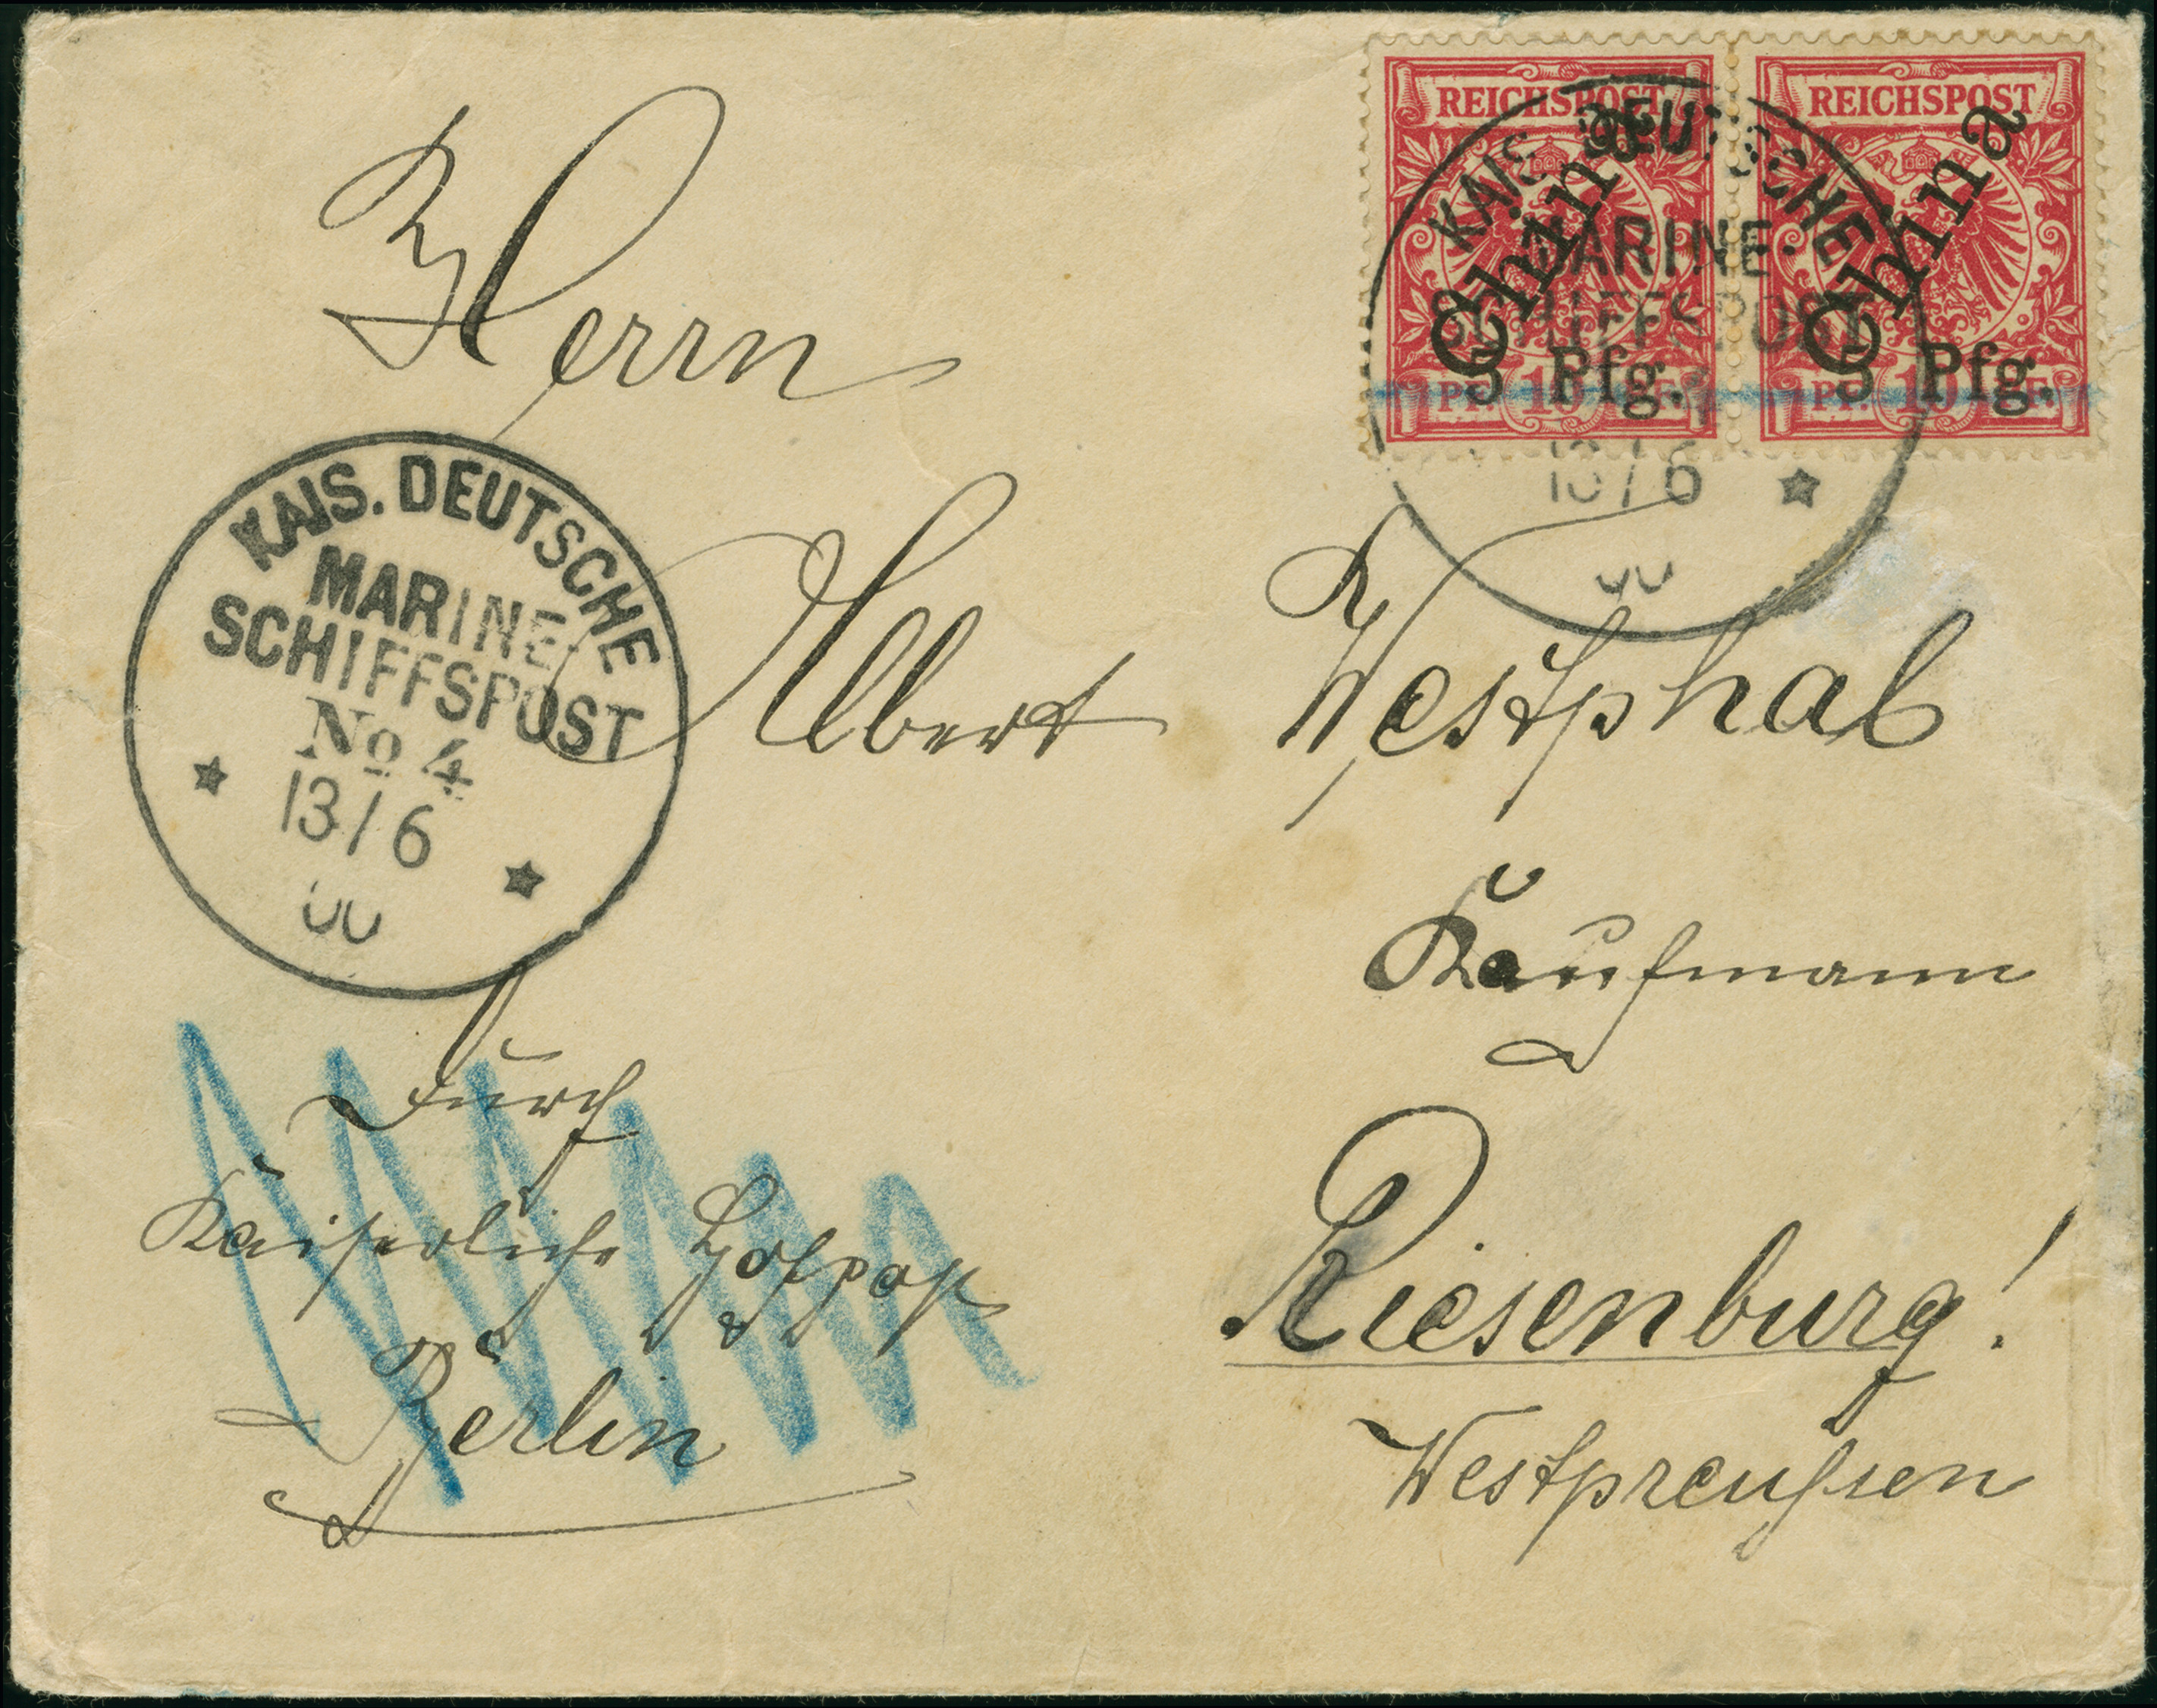 REICHSPOST REICHSPOST
China China
5 Pfg. 5 Pfg.
PF. 10 PF. PF. 10 PF.
KAIS. DEUTSCHE
MARINE-
SCHIFFSPOST
13/6
00
Herrn
KAIS. DEUTSCHE
MARINE-
SCHIFFSPOST
No 4
13/6
00
Albert Westphal
Kaufmann
Durch
Kaiserliche Hofpost
Berlin
Riesenburg!
Westpreußen